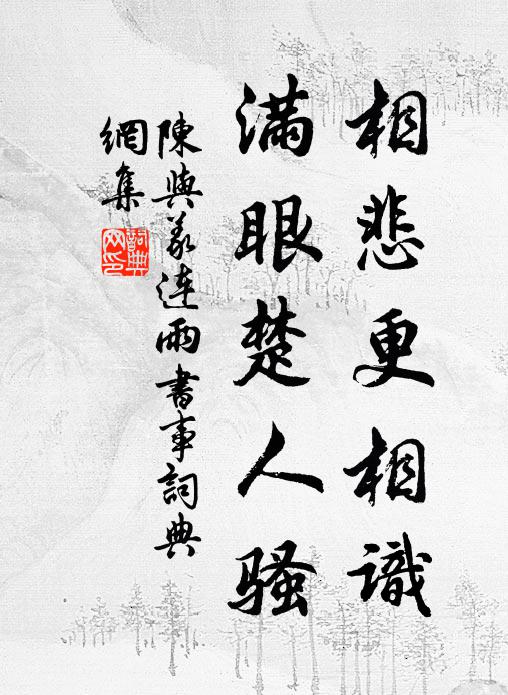 相悲更相識
滿眼楚人騷
陳與義連雨書事詞典
網集
詞典
网印